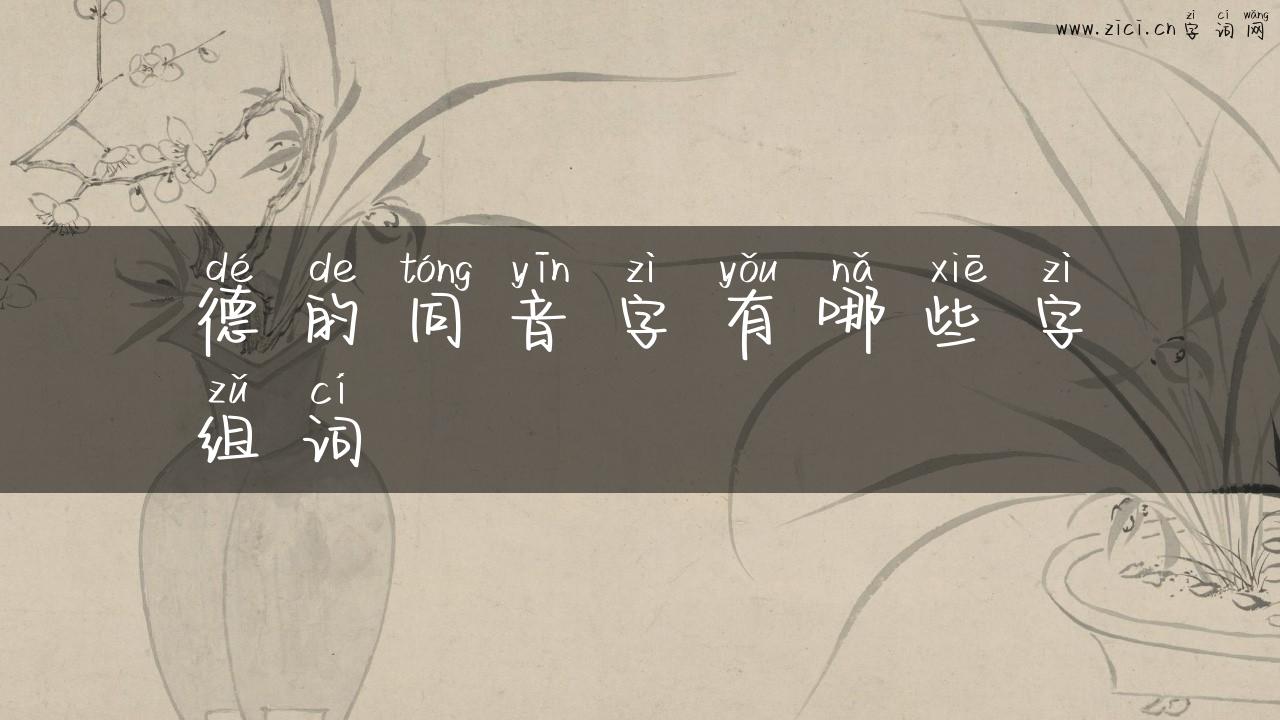 zì cí wǎng
www.zici.cn 字词网
dé de tóng yīn zì yǒu nǎ xiē zì
德的同音字有哪些字
zǔ cí
组词